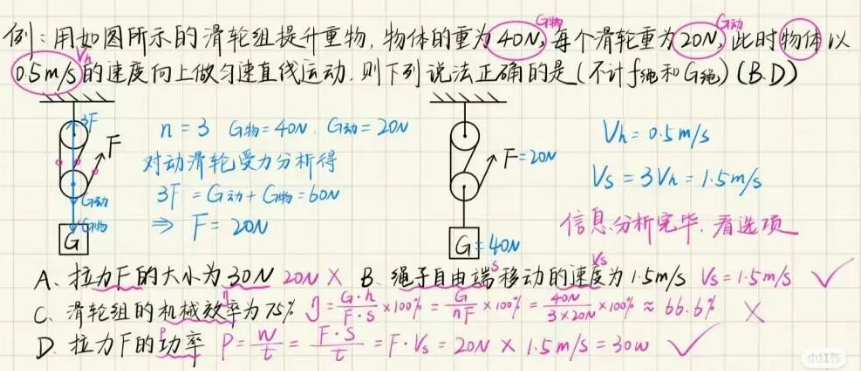 例:用如图所示的滑轮组提升重物,物体的重为40N,每个滑轮重为20N,此时物体以
G物
G动
0.5m/s的速度向上做匀速直线运动.则下列说法正确的是(不计f绳和G绳)(B.D)
Vh
3F
F
G动
G物
G
n=3 G物=40N. G动=20N
对动滑轮受力分析得
3F=G动+G物=60N
⇒ F=20N
F=20N
G=40N
Vh=0.5m/s
Vs=3Vh=1.5m/s
信息分析完毕.看选项
A、拉力F的大小为30N 20N × B、绳子自由端移动的速度为1.5m/s Vs=1.5m/s ✓
s
Vs
C、滑轮组的机械效率为75% η=G·h/F·s×100%=G/nF×100%=40N/3×20N×100%≈66.6% ×
η
D 拉力F的功率 P=W/t=F·S/t=F·Vs=20N×1.5m/s=30W ✓
P
小红书